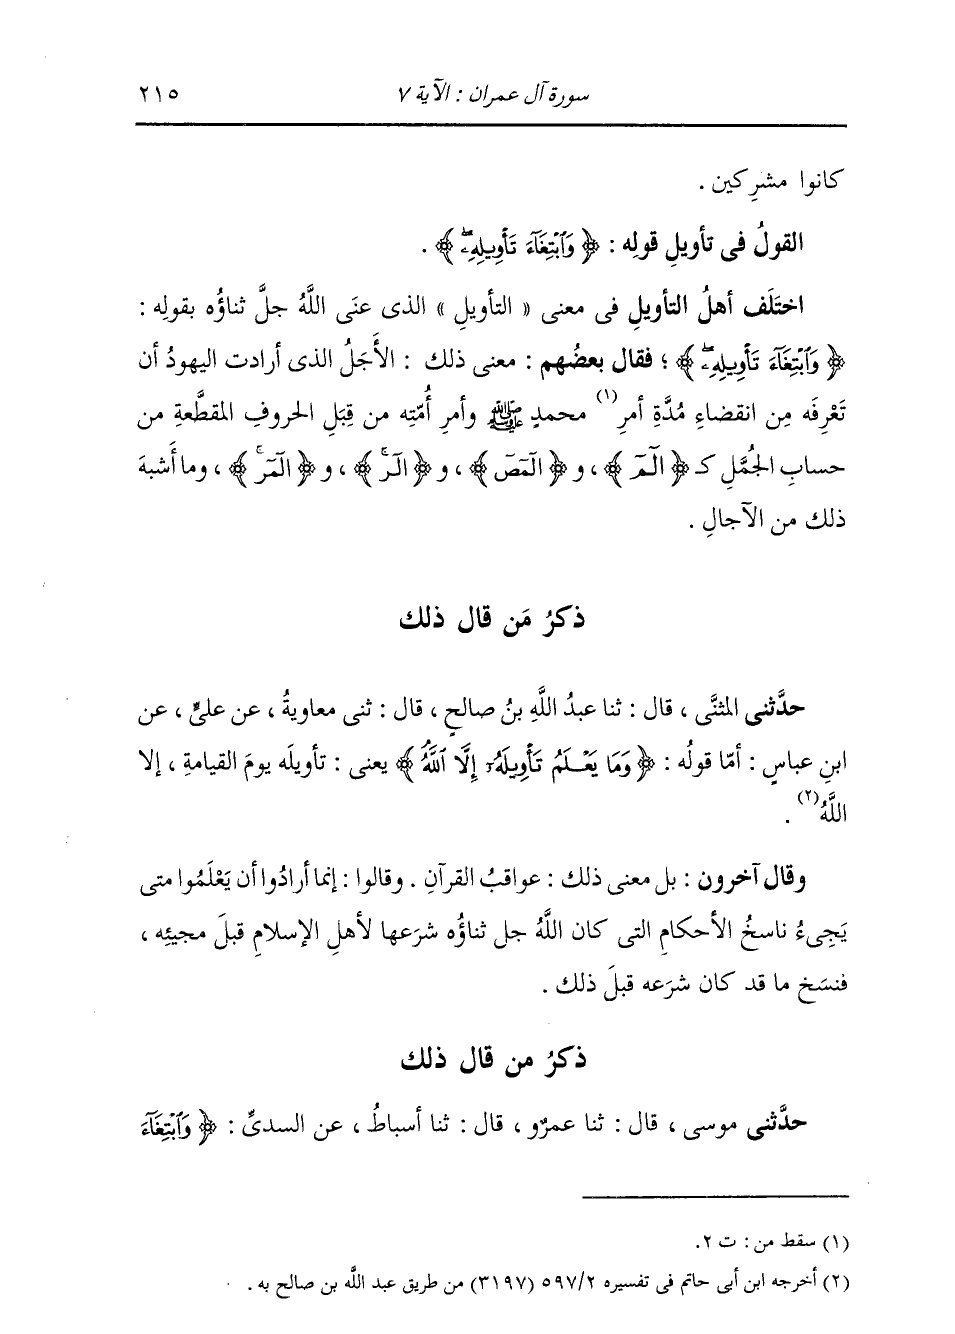 سورة آل عمران : الآية ٧ ٢١٥
كانوا مشرِكين .
القولُ فى تأويلِ قولِه : ﴿ وَٱبْتِغَآءَ تَأْوِيلِهِۦۖ ﴾ .
اختلَف أهلُ التأويلِ فى معنى « التأويلِ » الذى عنَى اللَّهُ جلَّ ثناؤُه بقولِه :
﴿ وَٱبْتِغَآءَ تَأْوِيلِهِۦۖ ﴾ ؛ فقال بعضُهم : معنى ذلك : الأَجَلُ الذى أرادت اليهودُ أن
تَعْرِفَه مِن انقضاءِ مُدَّةِ أمرِ(١) محمدٍ ﷺ وأمرِ أُمّتِه من قِبَلِ الحروفِ المقطَّعةِ من
حسابِ الجُمَّلِ كـ ﴿ الٓمٓ ﴾ ، و ﴿ الٓمٓصٓ ﴾ ، و ﴿ الٓرۚ ﴾ ، و ﴿ الٓمٓرۚ ﴾ ، وما أَشبهَ
ذلك من الآجالِ .
ذكرُ مَن قال ذلك
حدَّثنى المثنَّى ، قال : ثنا عبدُ اللَّهِ بنُ صالحٍ ، قال : ثنى معاويةُ ، عن علىٍّ ، عن
ابنِ عباسٍ : أمّا قولُه : ﴿ وَمَا يَعْلَمُ تَأْوِيلَهُۥٓ إِلَّا ٱللَّهُ ﴾ يعنى : تأويلَه يومَ القيامةِ ، إلا
اللَّهُ(٢) .
وقال آخرون : بل معنى ذلك : عواقبُ القرآنِ . وقالوا : إنما أرادُوا أن يَعْلَمُوا متى
يَجِىءُ ناسخُ الأحكامِ التى كان اللَّهُ جل ثناؤُه شرَعها لأهلِ الإسلامِ قبلَ مجيئِه ،
فنسَخ ما قد كان شرَعه قبلَ ذلك .
ذكرُ من قال ذلك
حدَّثنى موسى ، قال : ثنا عمرٌو ، قال : ثنا أسباطُ ، عن السدىِّ : ﴿ وَٱبْتِغَآءَ
(١) سقط من : ت ٢.
(٢) أخرجه ابن أبى حاتم فى تفسيره ٥٩٧/٢ (٣١٩٧) من طريق عبد اللَّه بن صالح به .